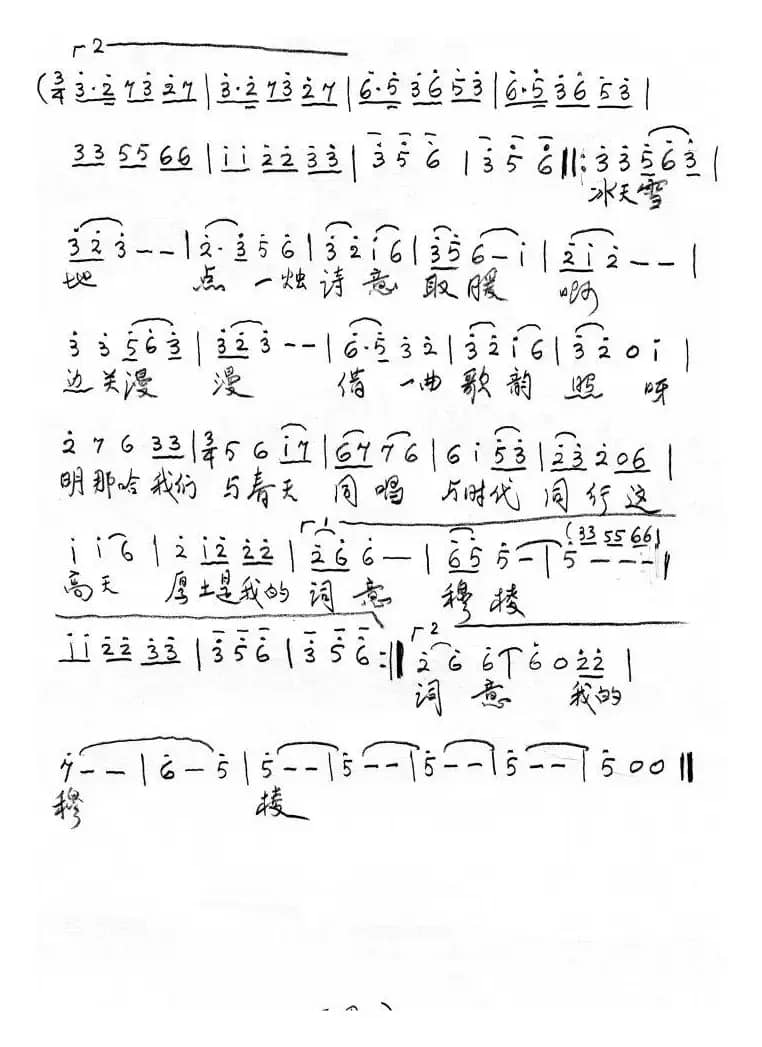 ┌2
(3/4 3·2 73 27 | 3·2 73 27 | 6·5 36 53 | 6·5 36 53 |
33 55 66 | ii 22 33 | 3 5 6 | 3 5 6 ‖: 3 3 563 |
冰天雪
323 - - | 2·3 5 6 | 32 i6 | 35 6 - i | 2i2 - - |
地 点一烛诗意取暖 啊
3 3 563 | 323 - - | 6·5 32 | 32 i6 | 32 0 i |
边关漫 漫 借一曲歌韵照 呀
2 7 6 33 | 3/4 5 6 i7 | 67 76 | 6 i 53 | 23 2 06 |
明那哈我们与春天同唱与时代同行这
┌1 (33 55 66)
i i6 | 2 i2 22 | 26 6 - | 65 5 - | 5 - - - ‖
高天 厚土是我的词意 穆棱
ii 22 33 | 3 5 6 | 3 5 6 :‖ ┌2 2 6 6 | 6 0 22 |
词意 我的
7 - - | 6 - 5 | 5 - - | 5 - - | 5 - - | 5 - - | 5 0 0 ‖
穆 棱